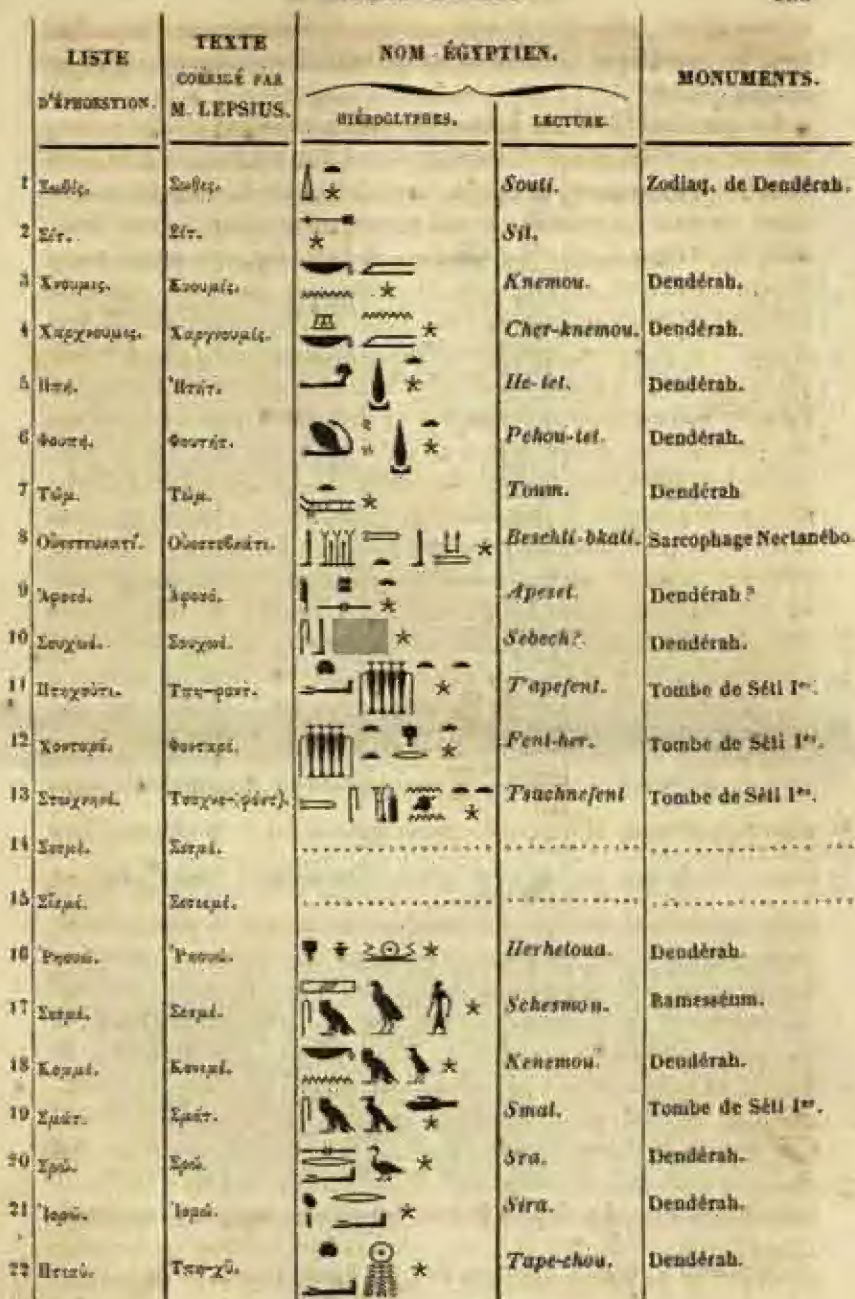 LISTE D'ÉPHOESTION. TEXTE CORRIGÉ PAR M. LEPSIUS. NOM ÉGYPTIEN. HIÉROGLYPHES. LECTURE. MONUMENTS.
1 Σωθίς. Σωθες. Souti. Zodiaq. de Dendérah.
2 Σίτ. Σίτ. Sit.
3 Χνουμις. Κνουμίς. Knemou. Dendérah.
4 Χαρχνουμις. Χαρχνουμίς. Cher-knemou. Dendérah.
5 Ηπή. Ἡτήτ. He-tet. Dendérah.
6 Φουπή. Φουτήτ. Pehou-tet. Dendérah.
7 Τώμ. Τώμ. Toum. Dendérah
8 Οὐεστευκατί. Οὐεστεβκάτι. Beschti-bkati. Sarcophage Nectanébo.
9 Ἀφοσό. Ἀφοσό. Apeset. Dendérah ?
10 Σουχωέ. Σουχωέ. Sebech?. Dendérah.
11 Πτηχούτι. Τπη-φοντ. T'apefent. Tombe de Séti Ier.
12 Χονταρέ. Φονταρέ. Fent-her. Tombe de Séti Ier.
13 Στωχνηνέ. Τσαχνε-(φόντ). Tsachnefent Tombe de Séti Ier.
14 Σεσμέ. Σεσμέ.
15 Σισμέ.
16 Ῥηουώ. Ῥηουώ. Herhetoua. Dendérah.
17 Σεσμέ. Σεσμέ. Schesmou. Ramesséum.
18 Κομμέ. Κονιμέ. Kenemou. Dendérah.
19 Σμάτ. Σμάτ. Smat. Tombe de Séti Ier.
20 Σρώ. Σρώ. Sra. Dendérah.
21 Ἰσρώ. Ἰσρώ. Sira. Dendérah.
22 Πτιαύ. Τπη-χῦ. Tape-chou. Dendérah.